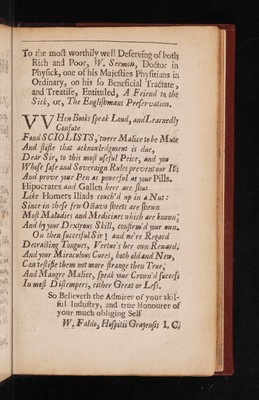 To the most worthily well Deserving of both
Rich and Poor, W. Sermon, Doctor in
Physick, one of his Majesties Physitians in
Ordinary, on his so Beneficial Tractate,
and Treatise, Entituled, A Friend to the
Sick, or, The Englishmans Preservation.
WHen Books speak Loud, and Learnedly
Confute
Fond SCIOLISTS, 'twere Malice to be Mute
And stifle that acknowledgment is due,
Dear Sir, to this most useful Peice, and you
Whose safe and Soveraign Rules prevent our Ills
And prove your Pen as powerful as your Pills.
Hipocrates and Gallen here are shut
Like Homers Iliads couch'd up in a Nut:
Since in these few Octavo sheets are shewn
Most Maladies and Medicines which are known;
And by your Dextrous Skill, confirm'd your own.
On then succesful Sir! and ne're Regard
Detracting Tongues, Vertue's her own Reward,
And your Miraculous Cures, both old and New,
Can testifie them not more strange then True;
And Maugre Malice, speak your Crown'd success
In most Distempers, either Great or Less.
So Believeth the Admirer of your skil-
ful Industry, and true Honourer of
your much obliging Self
W. Faldo, Hospitii Grayensis I. C.